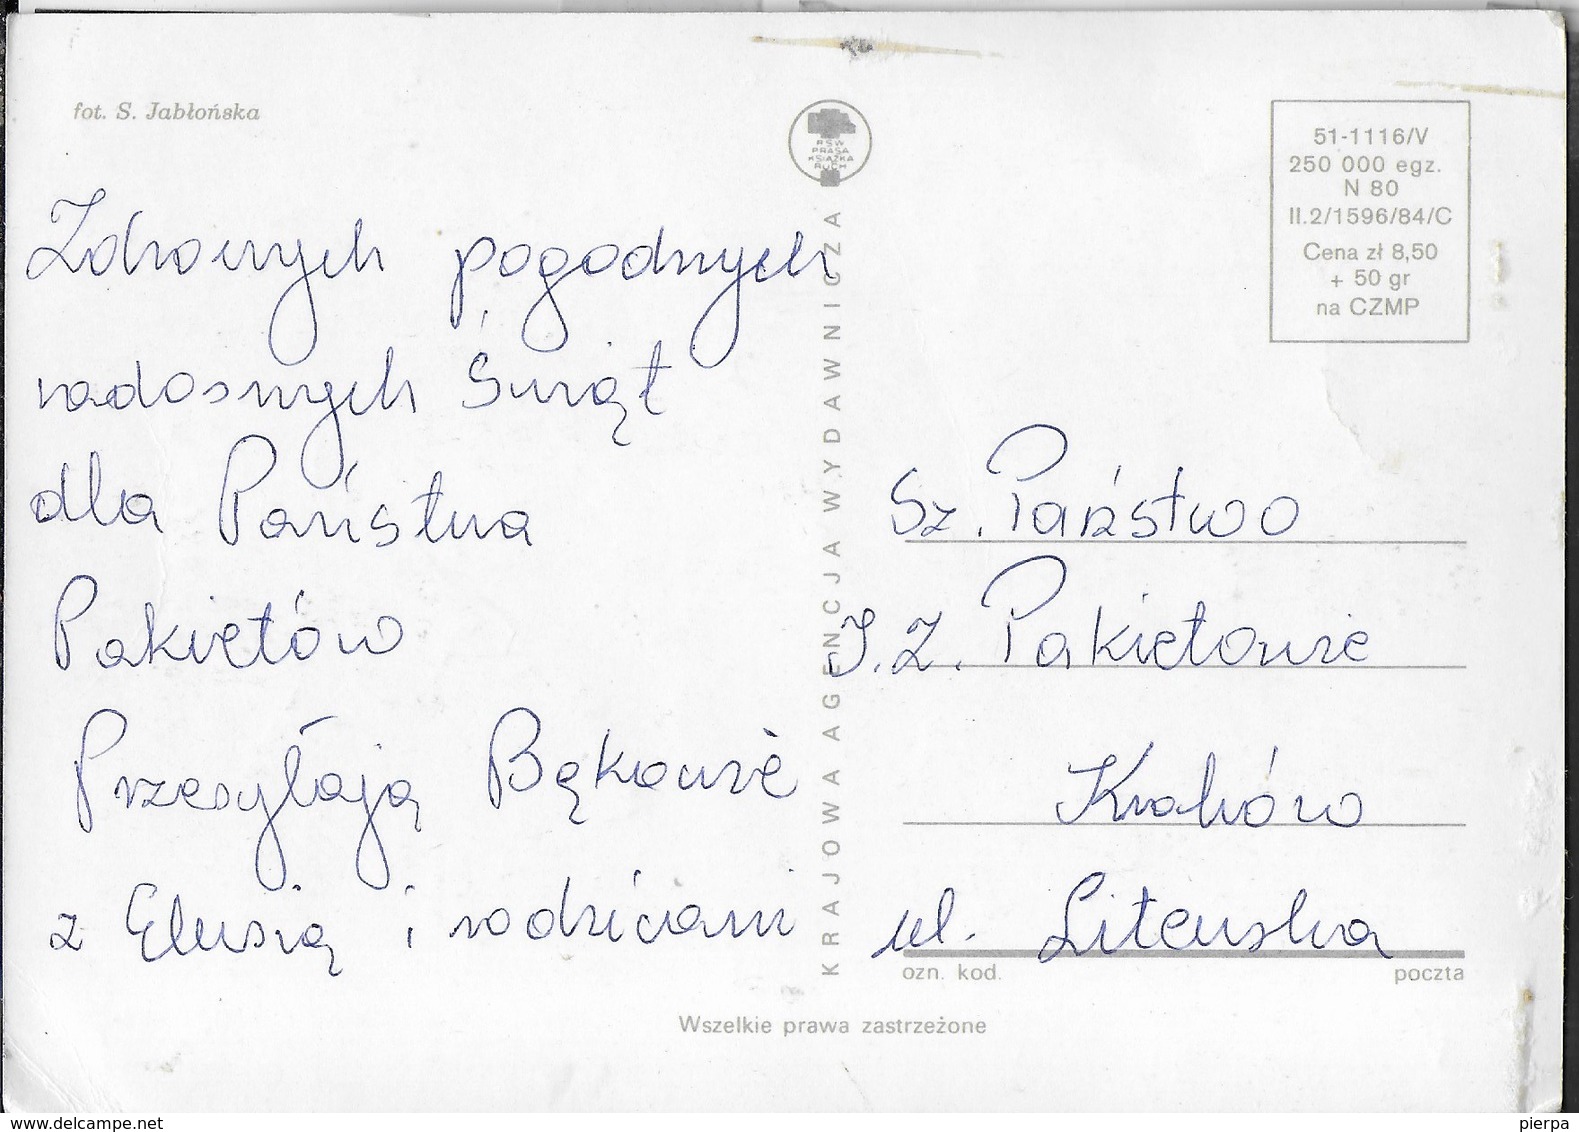 fot. S. Jabłońska
RSW
PRASA
KSIĄŻKA
RUCH
51-1116/V
250 000 egz.
N 80
II.2/1596/84/C
Cena zł 8,50
+ 50 gr
na CZMP
Zdrowych pogodnych
radosnych Świąt
dla Państwa
Pakietów
Przesyłają Bąkowie
z Elusią i rodzicami
KRAJOWA AGENCJA WYDAWNICZA
Sz. Państwo
J. Z. Pakietowie
Kraków
ul. Litewska
ozn. kod.
poczta
Wszelkie prawa zastrzeżone
www.delcampe.net
pierpa